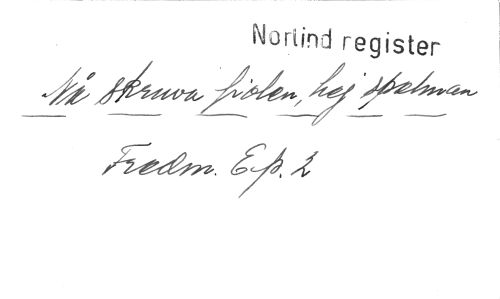 Norlind register
Nå skruva fiolen, hej spelman
Fredm. Ep. 2